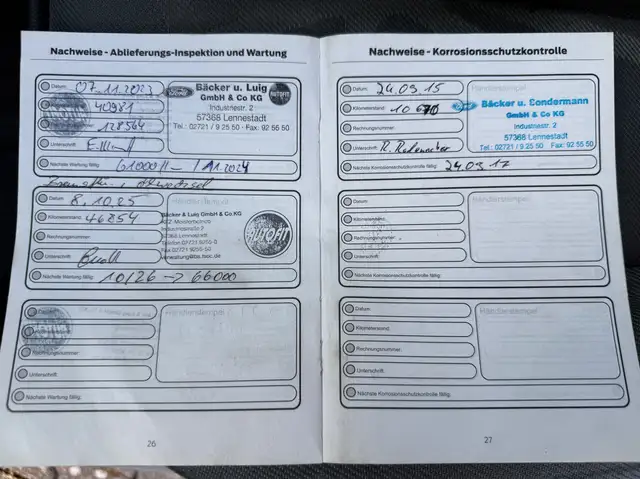 Nachweise - Ablieferungs-Inspektion und Wartung
Datum: 07.11.2023
40981
128564
Unterschrift
Nächste Wartung fällig: 61000 1/- / 11.2024
Ford
Bäcker u. Luig
GmbH & Co KG
Industriestr. 2
57368 Lennestadt
Tel.: 02721 / 9 25 50 · Fax: 92 55 50
AUTOFIT
Datum: 8.10.25
Kilometerstand: 46854
Rechnungsnummer:
Unterschrift
Nächste Wartung fällig: 10/26 → 66000
Bäcker & Luig GmbH & Co.KG
KFZ-Meisterbetrieb
Industriestraße 2
57368 Lennestadt
Telefon 02721 9255-0
Fax 02721 9255 50
AUTOFIT
Datum:
Rechnungsnummer:
Unterschrift:
Nächste Wartung fällig:
Händlerstempel
26
Nachweise - Korrosionsschutzkontrolle
Datum: 24.03.15
Kilometerstand:
Rechnungsnummer:
Unterschrift:
Nächste Korrosionsschutzkontrolle fällig: 24.03.17
Händlerstempel
Ford
Bäcker u. Sondermann
GmbH & Co KG
Industriestr. 2
57368 Lennestadt
Tel.: 02721 / 9 25 50 Fax: 92 55 50
Datum
Kilometerstand:
Rechnungsnummer:
Unterschrift:
Nächste Korrosionsschutzkontrolle fällig:
Händlerstempel
Datum
Kilometerstand:
Rechnungsnummer:
Unterschrift:
Nächste Korrosionsschutzkontrolle fällig:
Händlerstempel
27